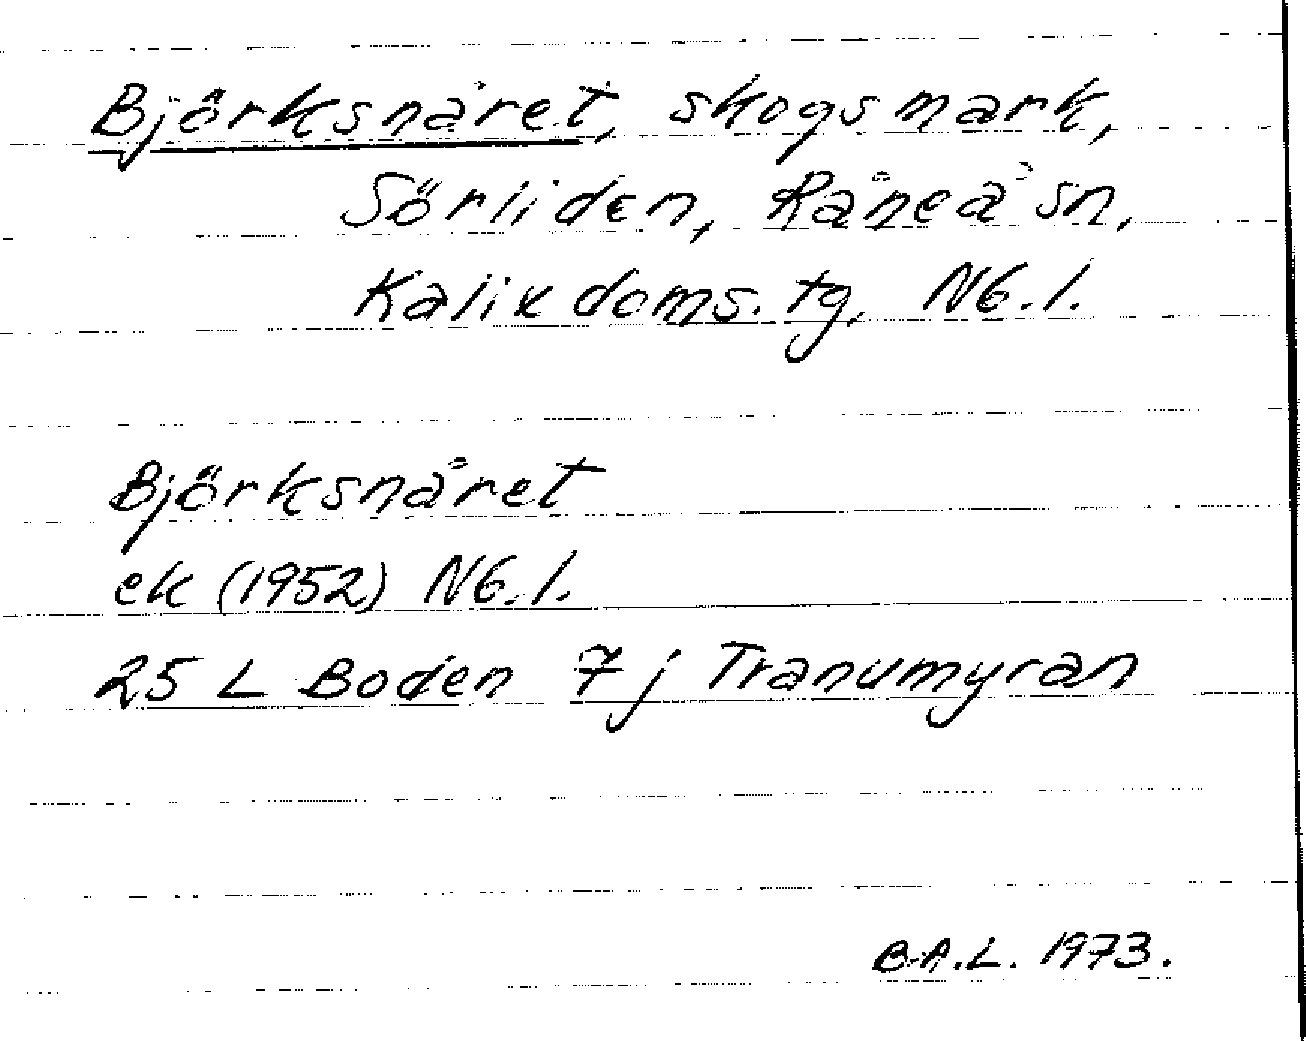 Björksnåret, skogsmark,
Sörliden, Råneå sn,
Kalix doms. tg, Nb. l.
Björksnåret
ek (1952) Nb. l.
25 L Boden 7 j Tranumyran
B.A.L. 1973.